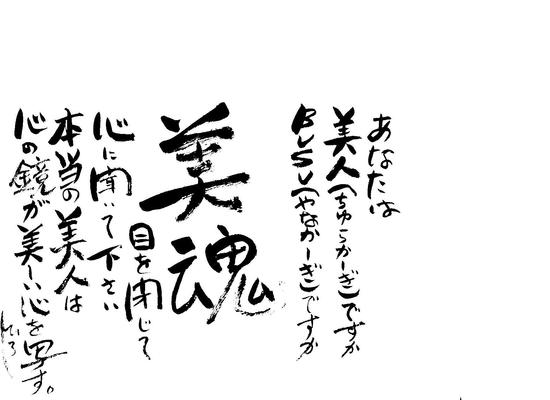 あなたは
美人(ちゅらかーぎ)ですか
BUSU(やなかーぎ)ですか
美魂
目を閉じて
心に聞いて下さい
本当の美人は
心の鏡が美しい心を写す。